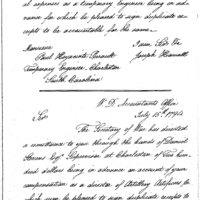 al expences as a temporary Engineer being in ad-
vance for which be pleased to sign duplicate rece-
ipts to be accountable for the same.
I am Sir &c
Monsieur
Paul Hyacinte Perault
Joseph Howell
Temporary Engineer Charleston
South Carolina
W. D. Accountants Office
July 15th 1794
Sir
The Secretary of War has directed
a remittance to you through the hands of Daniel
Stevens Esqr Supervisor at Charleston of Two hun
dred dollars being in advance on account of your
compensation as a director of Artillery Artificers for
which you be pleased to sign duplicate receipts to